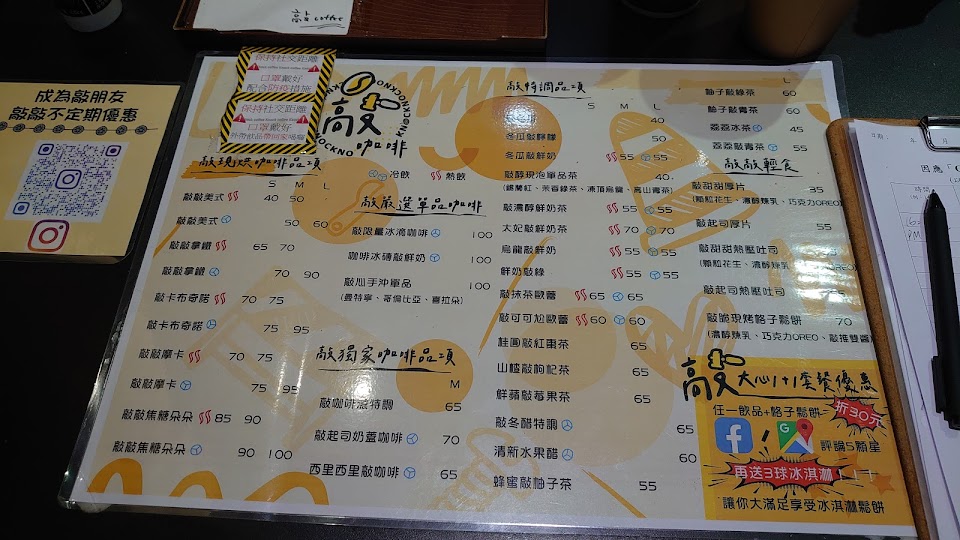 敲 coffee
成為敲朋友
敲敲不定期優惠
保持社交距離
口罩戴好
配合防疫措施
保持社交距離
口罩戴好
敲咖啡
敲現烘咖啡品項
S M L
敲敲美式 40 50
敲敲美式 50 60
敲敲拿鐵 65 70
敲敲拿鐵 70 90
敲卡布奇諾 70 75
敲卡布奇諾 75 95
敲敲摩卡 70 75
敲敲摩卡 75 95
敲敲焦糖朵朵 85 90
敲敲焦糖朵朵 90 100
冷飲 熱飲
敲嚴選單品咖啡
敲限量冰滴咖啡 100
咖啡冰磚敲鮮奶 100
敲心手沖單品 100
(曼特寧、哥倫比亞、喜拉朵)
敲獨家咖啡品項
M
敲咖啡蔗特調 65
敲起司奶蓋咖啡 70
西里西里敲咖啡 65
敲特調品項
S M L
冬瓜敲檸檬 50
冬瓜敲鮮奶 55 55
敲醇現泡單品茶 40
(錫蘭紅、茉香綠茶、凍頂烏龍、高山青茶)
敲濃醇鮮奶茶 55 55
大妃敲鮮奶茶 70 70
烏龍敲鮮奶 55 55
鮮奶敲綠 55 55
敲抹茶歐蕾 65 65
敲可可尬歐蕾 60 60
桂圓敲紅棗茶 65
山楂敲枸杞茶 65
鮮蘋敲莓果茶 65
敲冬醋特調 65
清新水果醋 60
蜂蜜敲柚子茶 55
L
柚子敲綠茶 60
柚子敲青茶 60
荔荔冰茶 45
荔荔敲青茶 55
敲敲輕食
敲甜甜厚片 35
(顆粒花生、濃醇煉乳、巧克力OREO)
敲起司厚片
敲甜甜熱壓吐司
(顆粒花生、濃醇煉乳、巧克力OREO)
敲起司熱壓吐司 75
敲脆現烤格子鬆餅 70
(濃醇煉乳、巧克力OREO、敲推雙醬)
敲大心1+1套餐優惠
任一飲品+格子鬆餅 折30元
評論5顆星
再送3球冰淇淋!!!
讓你大滿足享受冰淇淋鬆餅
因應
時間